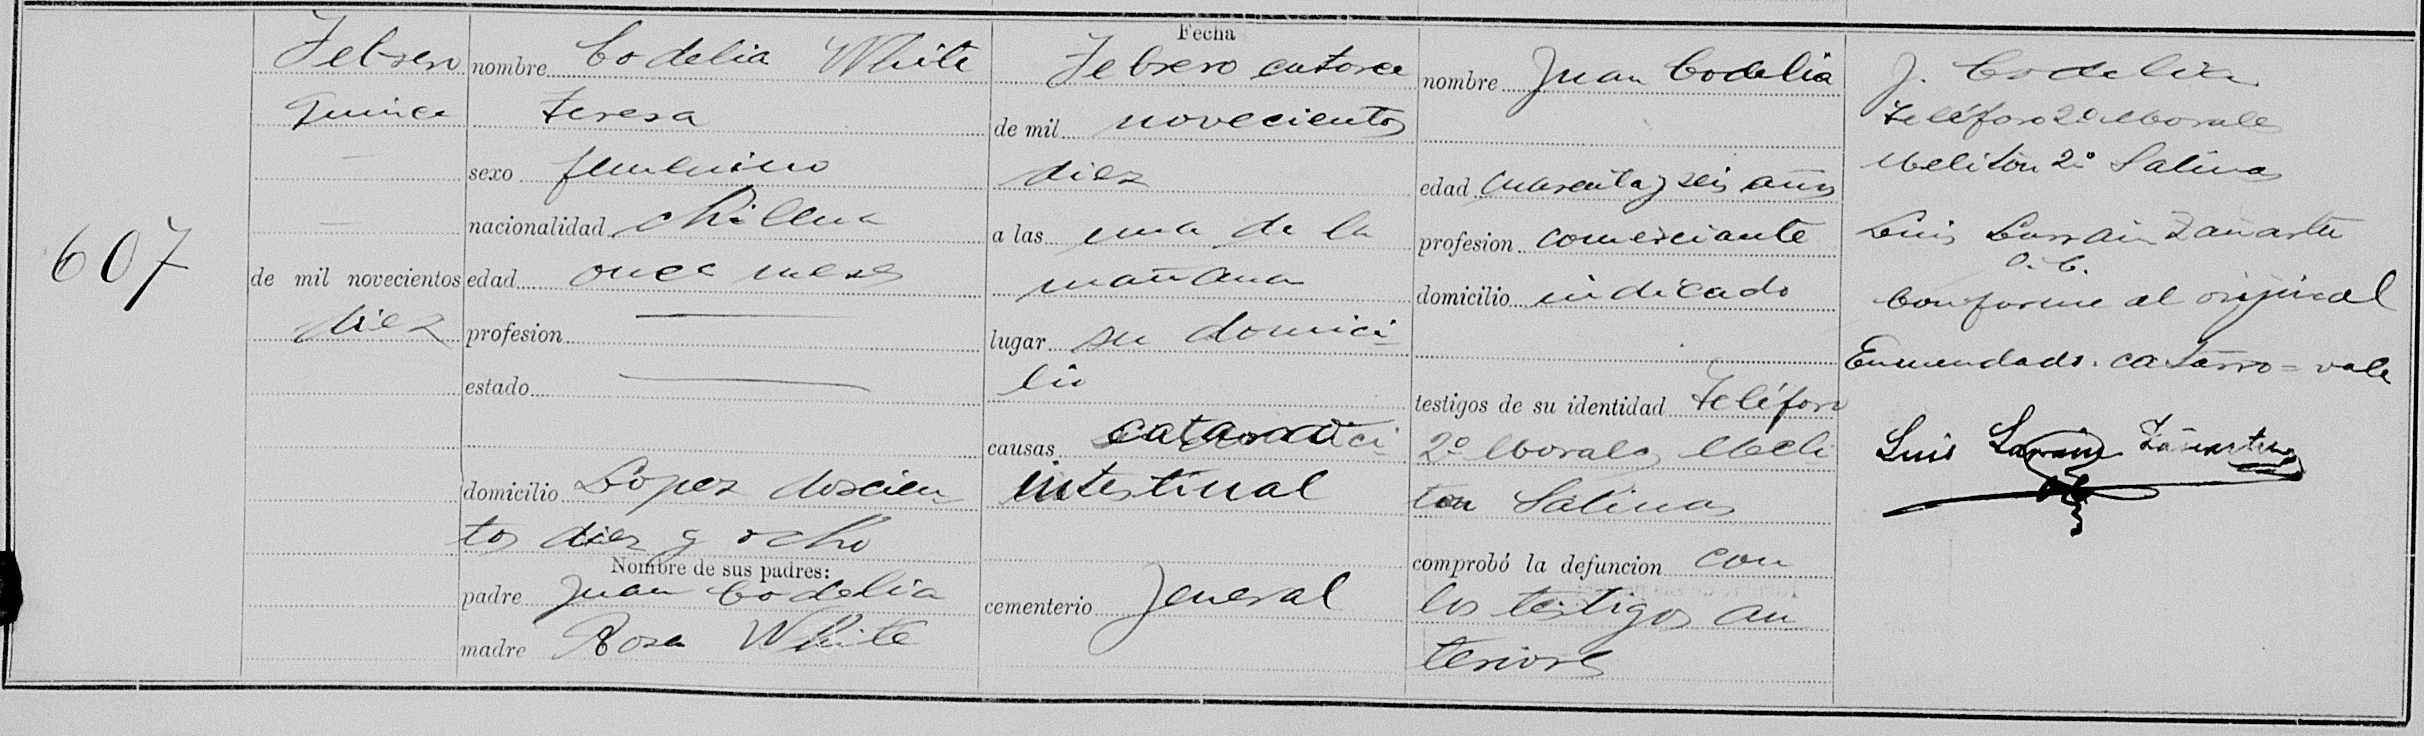 607
Febrero
quince
de mil novecientos
diez
nombre Codelia White
Teresa
sexo femenino
nacionalidad chilena
edad once meses
profesion
estado
domicilio Lopez doscien
tos diez y ocho
Nombre de sus padres:
padre Juan Codelia
madre Rosa White
Fecha
Febrero catorce
de mil novecientos
diez
a las una de la
mañana
lugar su domici
lio
causas
intestinal
cementerio Jeneral
nombre Juan Codelia
edad cuarenta y seis años
profesion comerciante
domicilio indicado
testigos de su identidad Teléforo
2º Morales Meli
ton Salinas
comprobó la defuncion con
los testigos an
teriores
J. Codelia
Teléforo 2º Morales
Meliton 2º Salinas
Luis Larrain Zañartu
O. C.
Conforme al orijinal
Enmendado. catarro = vale
Luis Larrain Zañartu